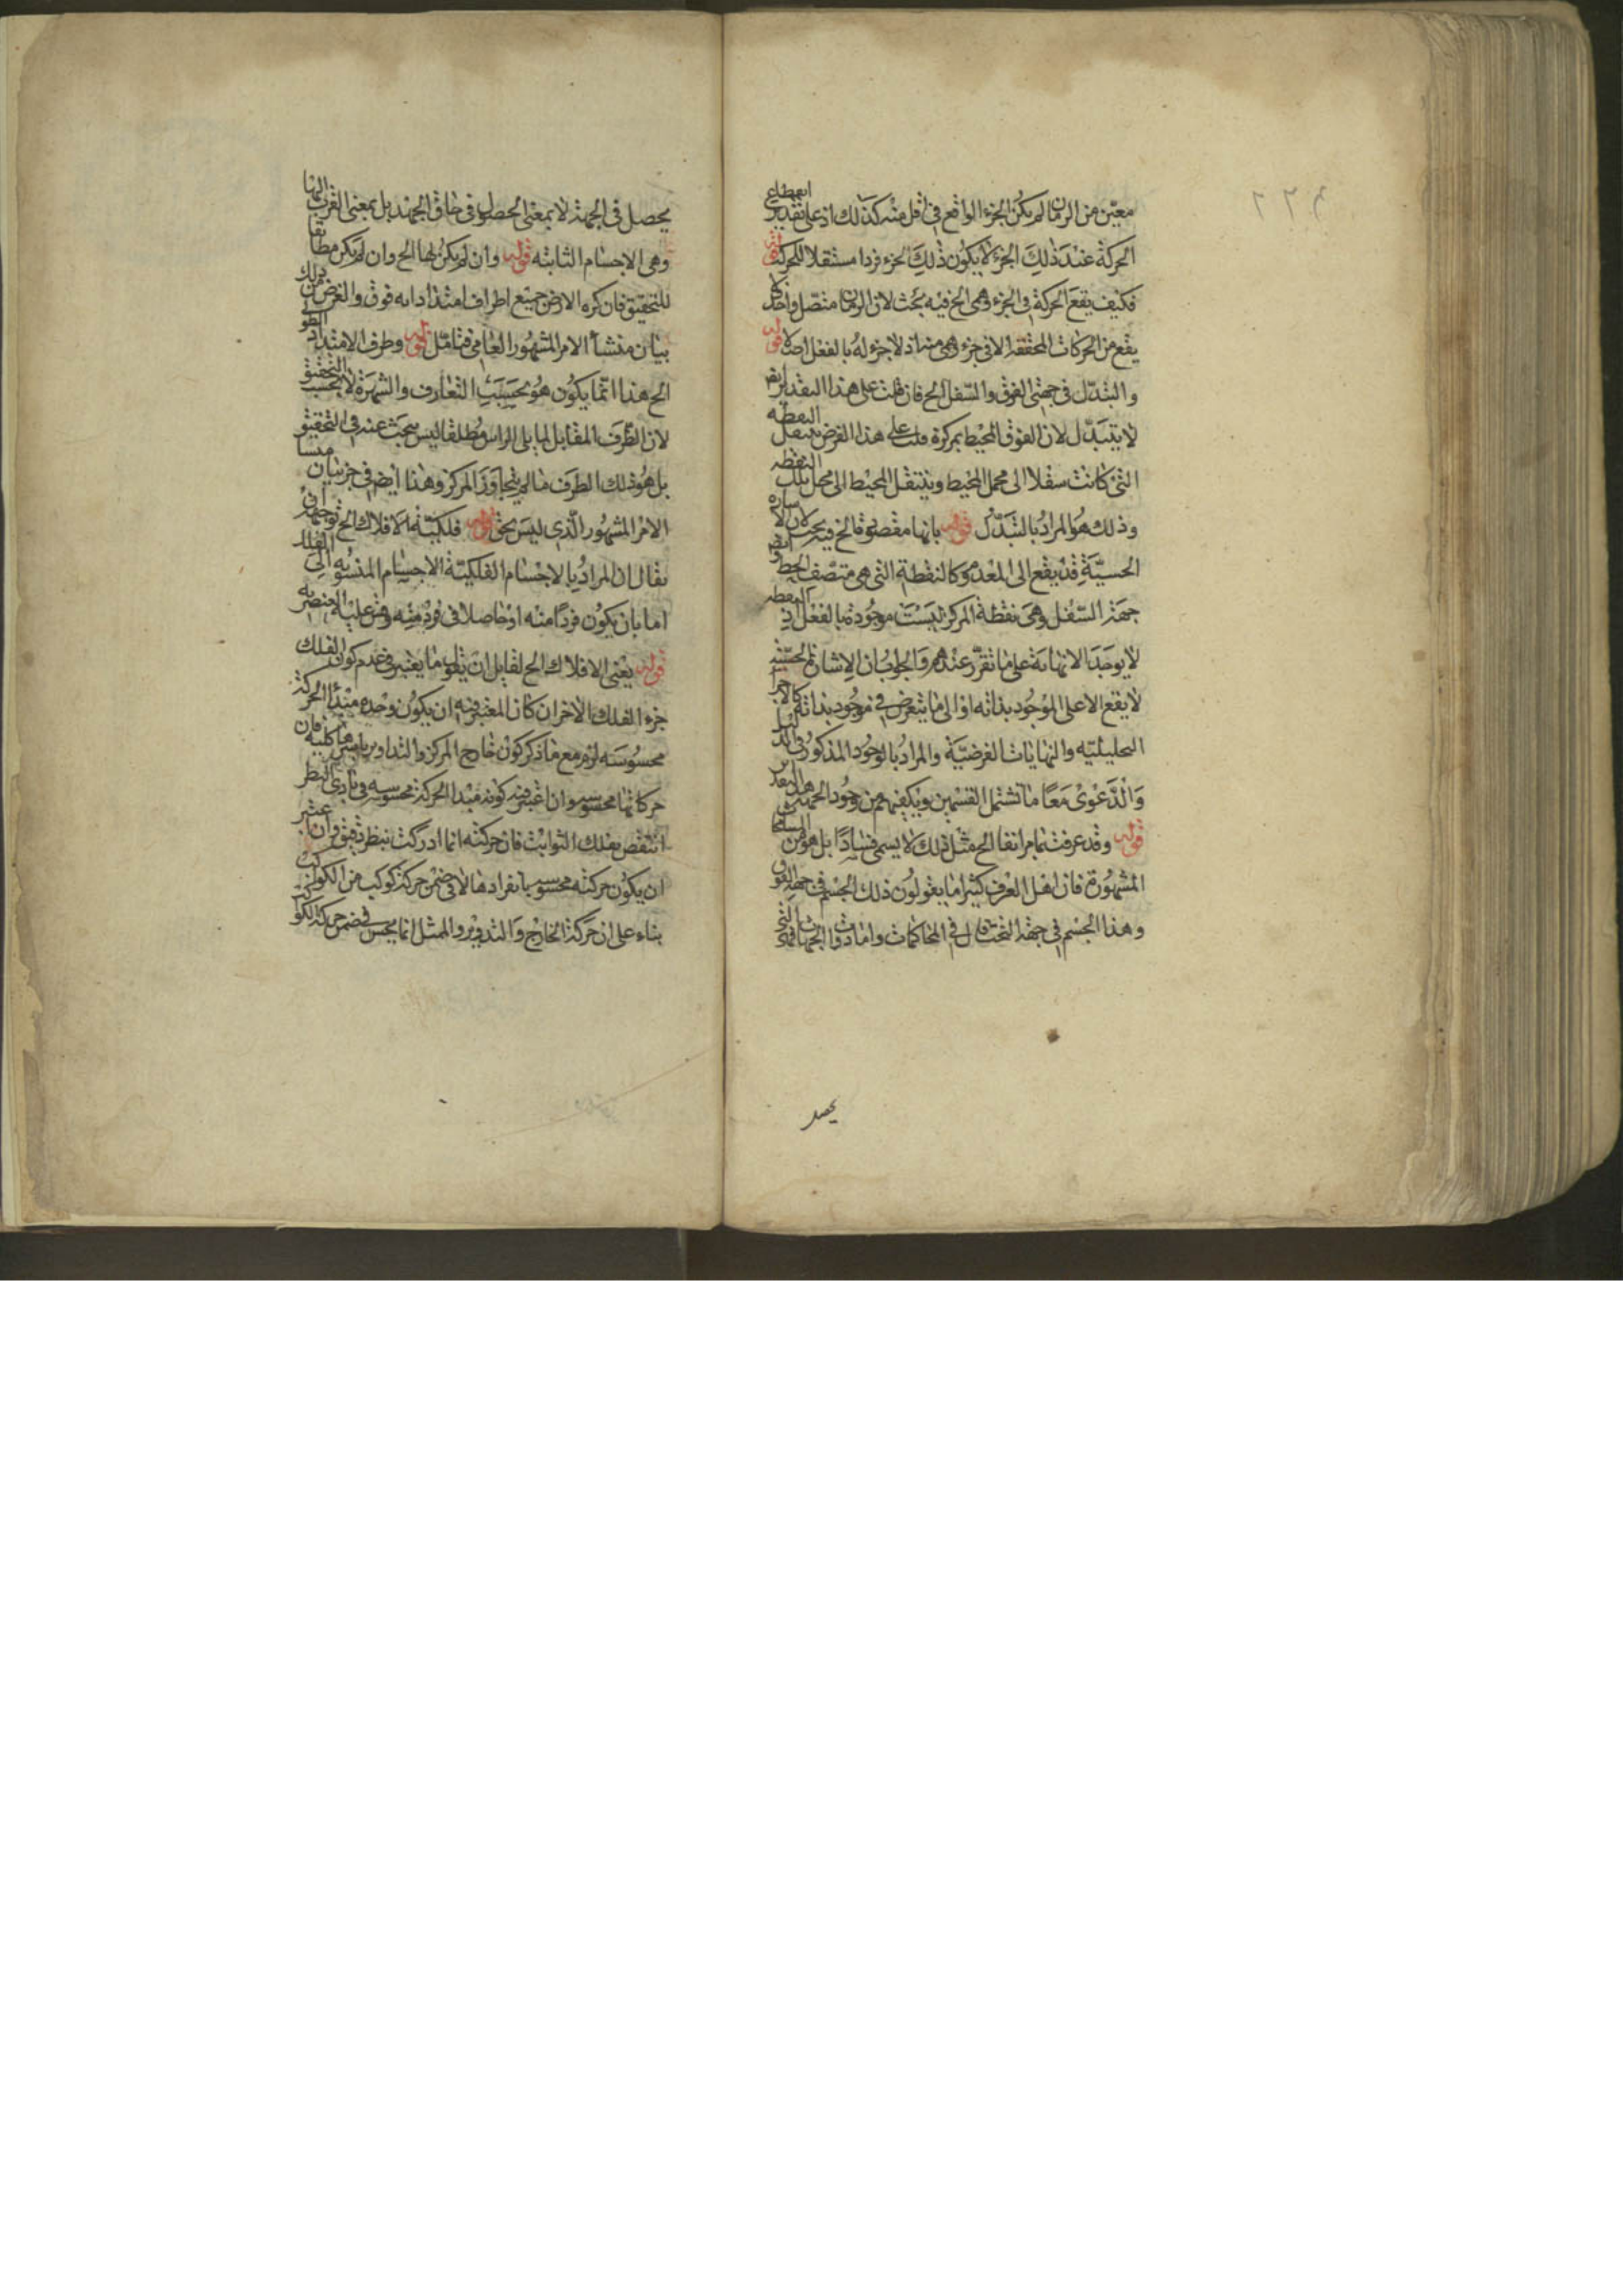 معين من الزمان لم يكن الجزء الواقع في اقل منه كذلك اذ على تقدير انقطاع
الحركة عند ذلك الجزء لا يكون ذلك الجزء فردا مستقلا للحركة
فكيف يقع الحركة في الجزء وهي الخ فيه بحث لان الزمان متصل واحد
يقع من الحركات المحققة الا في جزء وهمي منه اذ لا جزء له بالفعل اصلا قوله
والتبدل في جهتي الفوق والسفل الخ فان قلت على هذا التقدير ايضا
لا يتبدل لان الفوق المحيط بمركزه قلت على هذا الفرض ينتقل النقطة
التي كانت سفلا الى محل المحيط وينتقل المحيط الى محل تلك النقطة
وذلك هو المراد بالتبدل قوله بانها مقصودة الخ فيه بحث لان الاشارة
الحسية قد يقع الى المعدوم كالنقطة التي هي منتصف الخط
جهة السفل وهي نقطة المركز ليست موجودة بالفعل اذ النقطة
لا يوجد الا نهاية على ما تقرر عندهم والجواب ان الاشارة الحسية
لا يقع الا على الموجود بذاته او الى ما يتعرض في موجود بذاته كالاجزاء
التحليلية والنهايات الفرضية والمراد بالوجود المذكور في الدليل
والدعوى معا ما تشتمل القسمين ويكفيهم من وجود الجهة هذا القدر
قوله وقد عرفت بما مر انفا الخ مثل ذلك لا يسمى فسادا بل هو من
المشهورة فان اهل العرف كثيرا ما يقولون ذلك الجسم في جهة الفوق
وهذا الجسم في جهة التحت قال في المحاكمات واما ذوات الجهات فهي التي
يحصل
يحصل في الجهة لا بمعنى الحصول في حاق الجهة بل بمعنى القرب اليها
وهي الاجسام الثابته قوله وان لم يكن لها الخ وان لم يكن مطابقا
للتحقيق فان كره الارض جميع اطراف امتداداته فوق والغرض من ذلك
بيان منشأ الامر المشهور العامي فتامل قوله وطرف الامتداد الطولي
الخ هذا انما يكون هو بحسب التعارف والشهرة لا بحسب التحقيق
لان الطرف المقابل لما يلي الراس مطلقا ليس بتحت عند في التحقيق
بل هو ذلك الطرف ما لم يتجاوز المركز وهذا ايضا في حيز بيان منشا
الامر المشهور الذي ليس بحق قوله فلكية الافلاك الخ توجيهه ان
يقال ان المراد بالاجسام الفلكية الاجسام المنسوبة الى الفلك
اما بان يكون فردا منه او حاصلا في فرد منه وقس عليه العنصرية
قوله يعني الافلاك الخ لقايل ان يقول ما يعتبر في عدم كون الفلك
جزء الفلك الاخر ان كان المعتبر فيه ان يكون وحده مبدأ الحركة
محسوسة لزم مع ما ذكر كون خارج المركز والتداوير باسرها كلية فان
حركاتها محسوسة وان اعتبر فيه كونه مبدا الحركة محسوسه في بادي النظر
انتقض بفلك الثوابت فان حركته انما ادركت بنظر دقيق وان اعتبر
ان يكون حركته محسوسة بانفرادها لا في ضمن حركة كوكب من الكواكب
بناء على ان حركة الخارج والتدوير والممثل انما يحس في ضمن حركة الكواكب